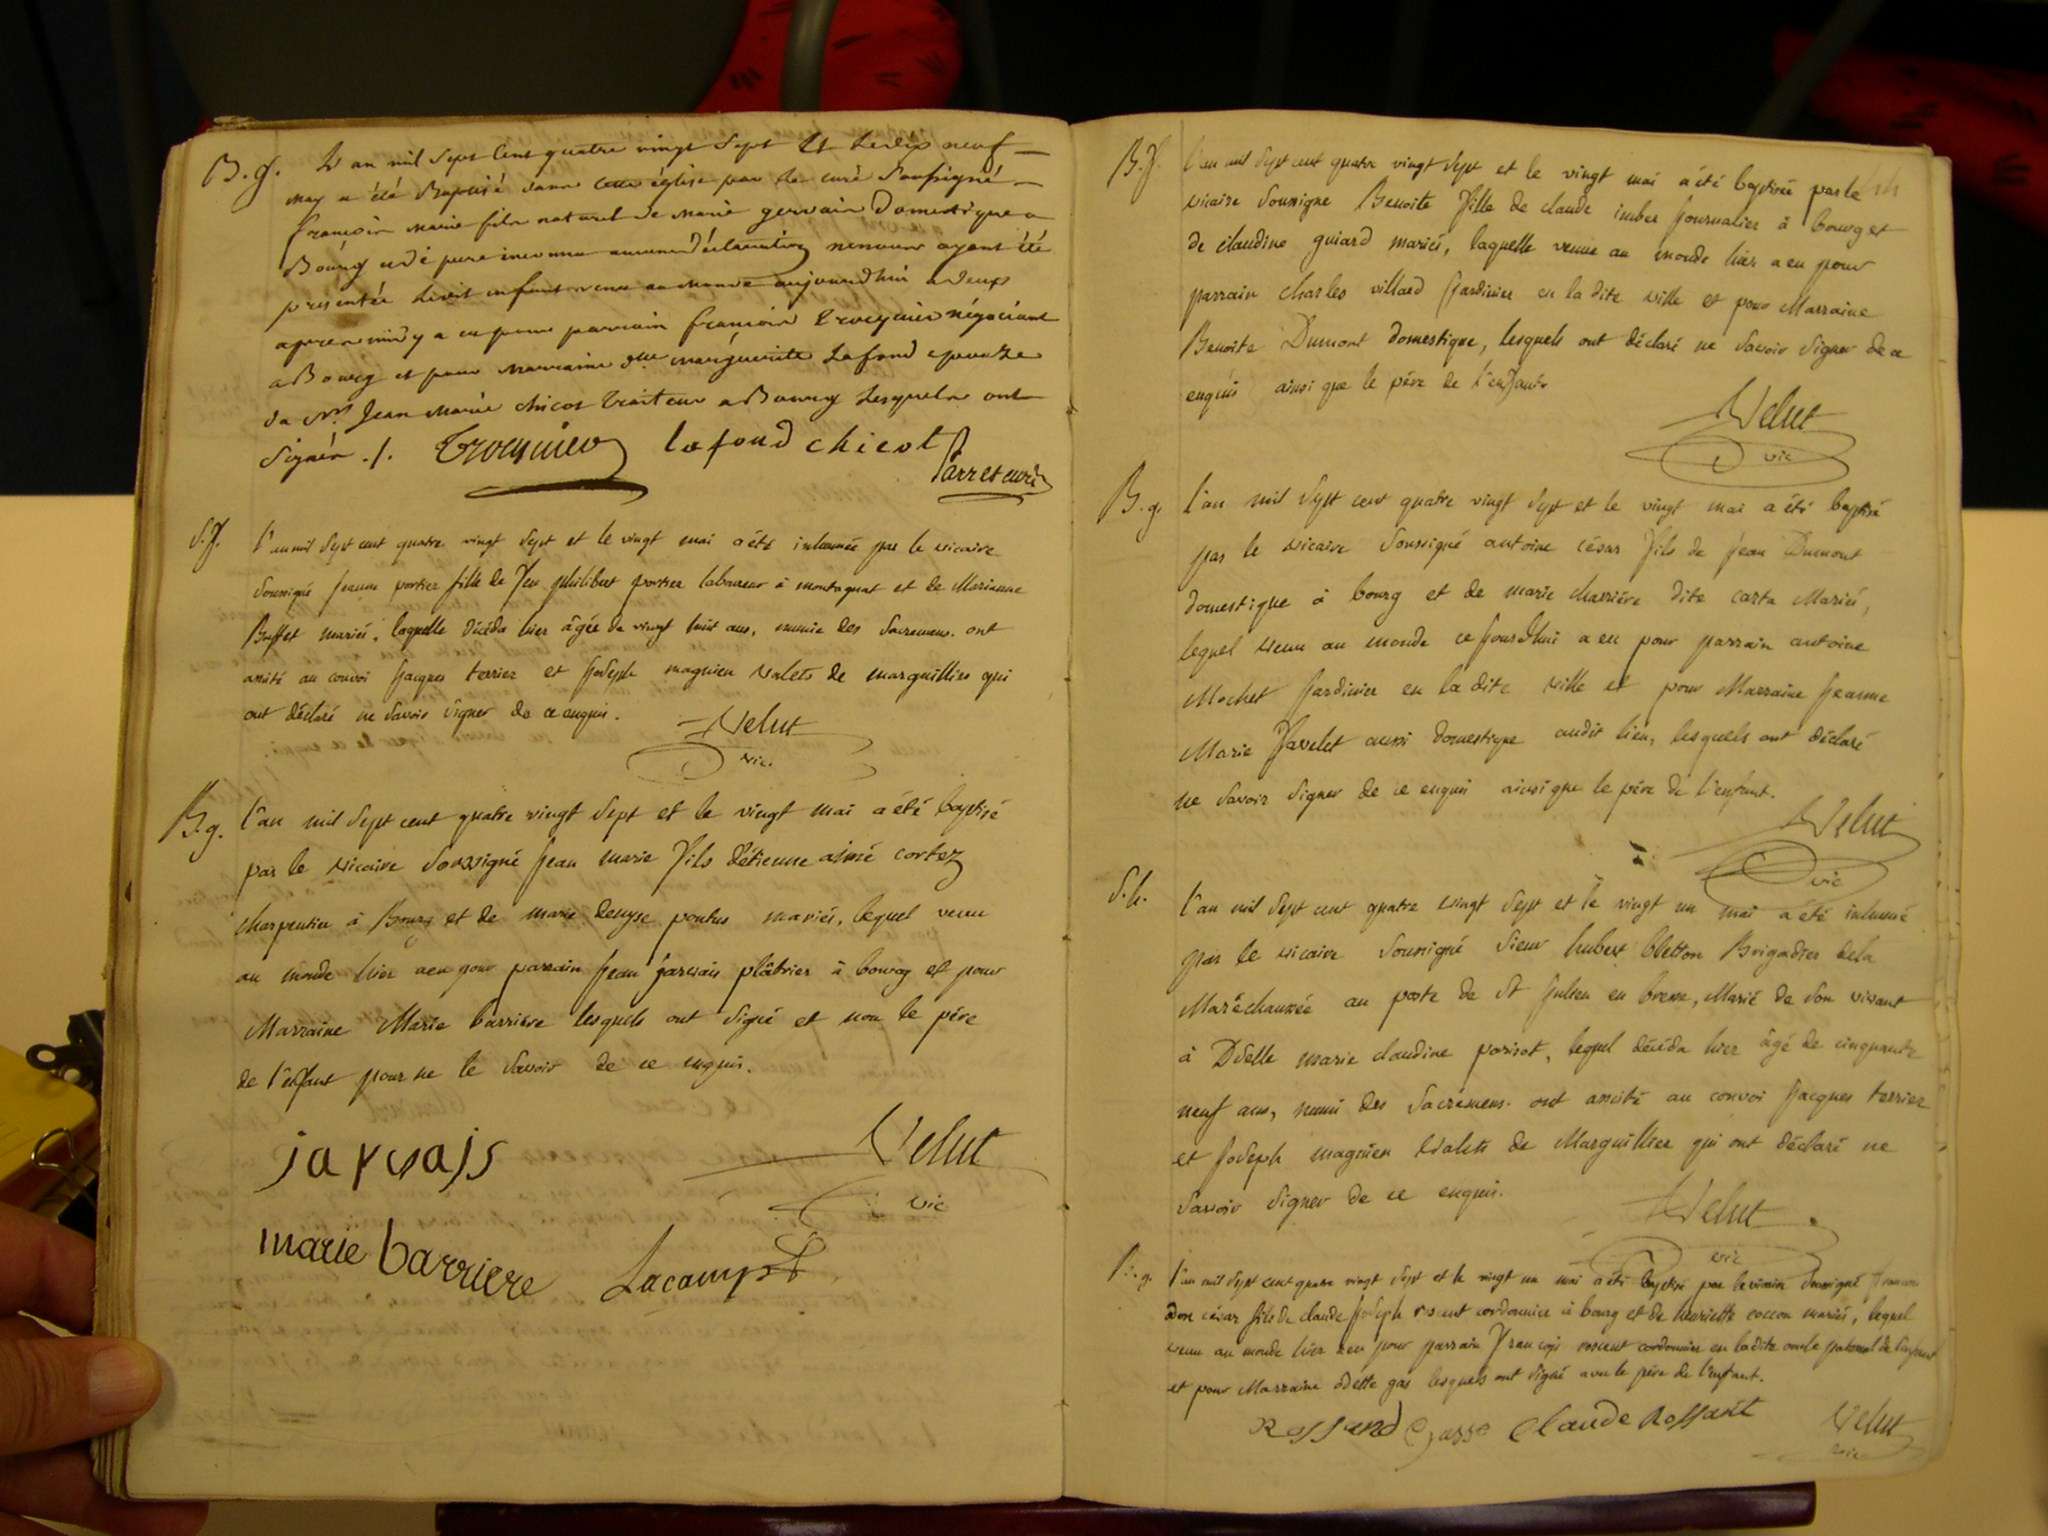 B. g. L'an mil sept cent quatre vingt sept et le dix neuf
may a été Baptisé dans cette église par le curé soussigné
françois marie fils naturel de marie gervais domestique a
Bourg et de pere inconnu aucune déclaration ayant été
presentée ledit enfant venu au monde aujourdhui a deux
apres midy a eu pour parrain françois négociant
a Bourg et pour marraine dlle marguerite Lafond epouse
de Mr. Jean Marie chicot traiteur a Bourg Lesquels ont
signés ./. lafond chicot
Parret curé
S. f. L'an mil sept cent quatre vingt sept et le vingt mai a été inhumée par le vicaire
soussigné jeanne portier fille de feu philibert portier laboureur à montagnat et de Marianne
Buffet mariés, laquelle décéda hier âgée de vingt huit ans, munie des sacremens. ont
assité au convoi jacques terrier et joseph magnien valets de marguillier qui
ont déclaré ne savoir signer de ce enquis.
Velut
vic.
B. g. L'an mil sept cent quatre vingt sept et le vingt mai a été baptisé
par le vicaire soussigné jean marie fils d'étienne aimé cortez
charpentier à Bourg et de marie denyse pontus mariés, lequel venu
au monde hier a eu pour parrain jean jarvais plâtrier à bourg et pour
Marraine Marie barrière lesquels ont signé et non le père
de l'enfant pour ne le savoir de ce enquis.
jarvais Velut
vic
marie barriere Lacamp
B. f. L'an mil sept cent quatre vingt sept et le vingt mai a été baptisée par le
vicaire soussigné Benoite fille de claude imber journalier à bourg et
de claudine guiard mariés, laquelle venue au monde hier a eu pour
parrain charles villard jardinier en la dite ville et pour Marraine
Benoite Dumont domestique, lesquels ont déclaré ne savoir signer de ce
enquis ainsi que le père de l'enfant.
Velut
vic
B. g. L'an mil sept cent quatre vingt sept et le vingt mai a été baptisé
par le vicaire soussigné antoine césar fils de jean Dumont
domestique à bourg et de marie charrière dite carta Mariés,
lequel venu au monde ce jourdhui a eu pour parrain antoine
Mochet jardinier en la dite ville et pour Marraine jeanne
Marie favelet aussi domestique audit lieu, lesquels ont déclaré
ne savoir signer de ce enquis ainsi que le père de l'enfant.
Velut
vic
S. h. L'an mil sept cent quatre vingt sept et le vingt un mai a été inhumé
par le vicaire soussigné sieur hubert bletton Brigadier de la
Maréchaussée au poste de St julien en bresse, Marié de son vivant
à Ddelle marie claudine parisot, lequel décéda hier âgé de cinquante
neuf ans, muni des sacrémens. ont assité au convoi jacques terrier
et joseph magnien valets de Marguillier qui ont déclaré ne
savoir signer de ce enquis.
Velut
vic
B. g. L'an mil sept cent quatre vingt sept et le vingt un mai a été baptisé par le vicaire soussigné françois
césar fils de claude joseph cordonnier à bourg et de henriette coccon mariés, lequel
venu au monde hier a eu pour parrain françois cordonnier en la dite oncle paternel de l'enfant
et pour Marraine odette gas lesquels ont signé avec le père de l'enfant.
Rossand gasse Claude Rossant Velut
vic